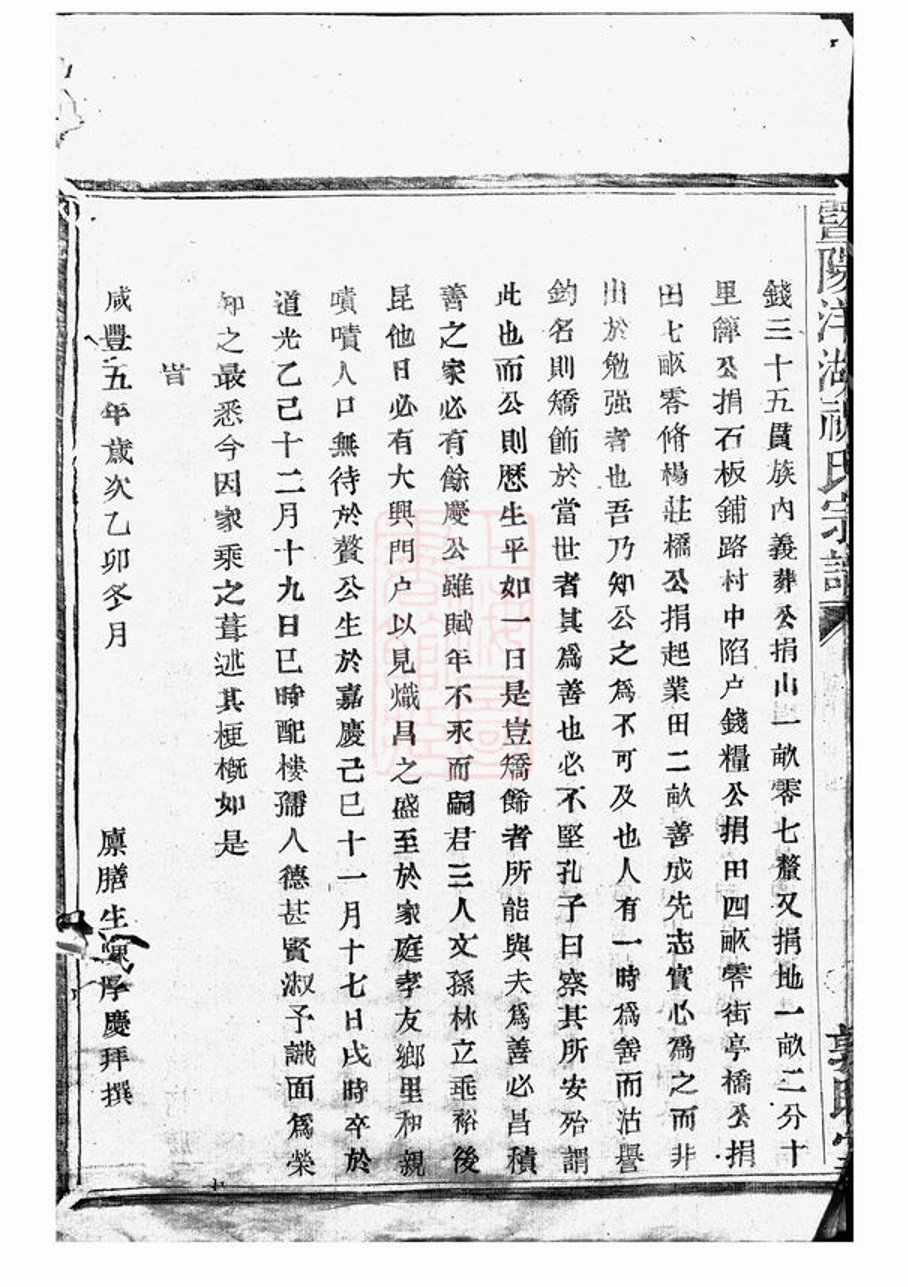 暨陽洋湖祝氏宗譜
錢三十五貫族內義葬公捐山一畝零七釐又捐地一畝二分十
里簰公捐石板鋪路村中陷户錢糧公捐田四畝零街亭橋公捐
田七畝零脩楊莊橋公捐起業田二畝善成先志實心為之而非
出於勉强者也吾乃知公之為不可及也人有一時為善而沽譽
釣名則矯飾於當世者其為善也必不堅孔子曰察其所安殆謂
此也而公則歷生平如一日是豈矯餙者所能與夫為善必昌積
善之家必有餘慶公雖賦年不永而嗣君三人文孫林立垂裕後
昆他日必有大興門户以見熾昌之盛至於家庭孝友鄉里和親
嘖嘖人口無待於贅公生於嘉慶己巳十一月十七日戌時卒於
道光乙巳十二月十九日巳時配樓孺人德甚賢淑予識面為榮
知之最悉今因家乘之葺述其梗概如是
旹
咸豐五年歲次乙卯冬月 廪膳生陳序慶拜撰